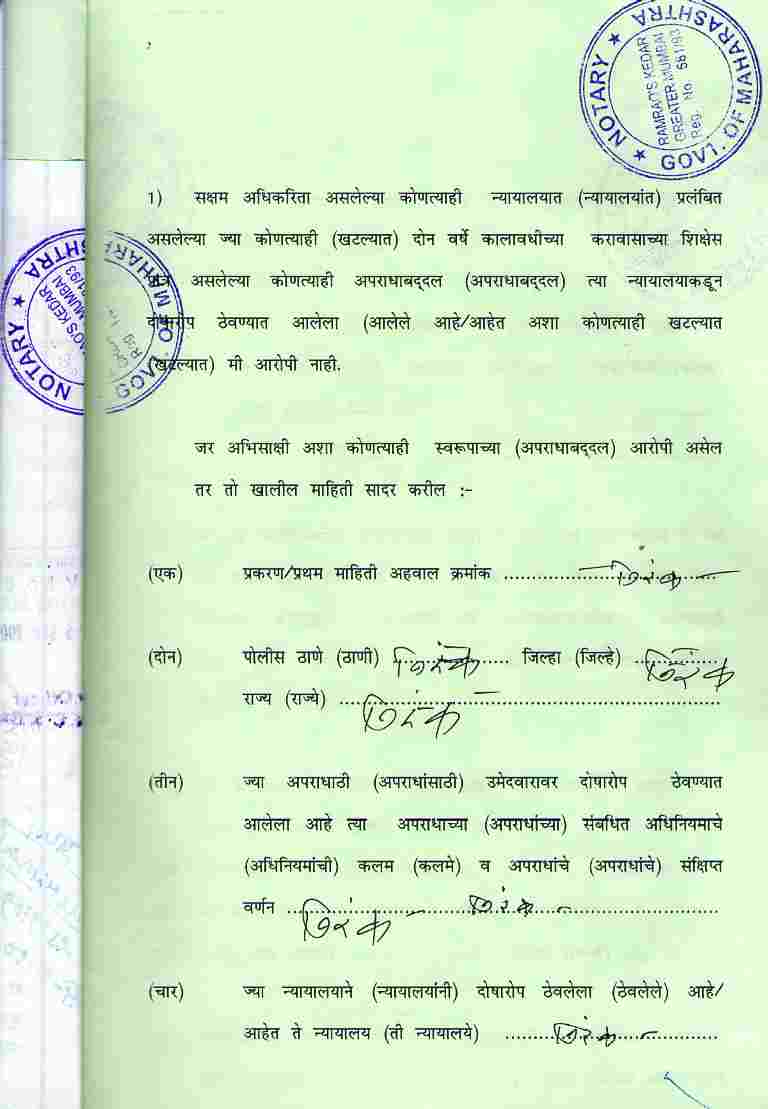 NOTARY ★ GOVT. OF MAHARASHTRA ★
RAMRAO S KEDAR
GREATER MUMBAI
Reg. No. 561/93
1) सक्षम अधिकरिता असलेल्या कोणत्याही न्यायालयात (न्यायालयांत) प्रलंबित
असलेल्या ज्या कोणत्याही (खटल्यात) दोन वर्षे कालावधीच्या करावासाच्या शिक्षेस
असलेल्या कोणत्याही अपराधाबद्दल (अपराधाबद्दल) त्या न्यायालयाकडून
दोषारोप ठेवण्यात आलेला (आलेले आहे/आहेत अशा कोणत्याही खटल्यात
(खटल्यात) मी आरोपी नाही.
जर अभिसाक्षी अशा कोणत्याही स्वरूपाच्या (अपराधाबद्दल) आरोपी असेल
तर तो खालील माहिती सादर करील :-
(एक) प्रकरण/प्रथम माहिती अहवाल क्रमांक ........ निरंक
(दोन) पोलीस ठाणे (ठाणी) ........ निरंक जिल्हा (जिल्हे) ........ निरंक
राज्य (राज्ये) ........ निरंक
(तीन) ज्या अपराधाठी (अपराधांसाठी) उमेदवारावर दोषारोप ठेवण्यात
आलेला आहे त्या अपराधाच्या (अपराधांच्या) संबधित अधिनियमाचे
(अधिनियमांची) कलम (कलमे) व अपराधांचे (अपराधांचे) संक्षिप्त
वर्णन ........ निरंक निरंक
(चार) ज्या न्यायालयाने (न्यायालयांनी) दोषारोप ठेवलेला (ठेवलेले) आहे/
आहेत ते न्यायालय (ती न्यायालये) ........ निरंक